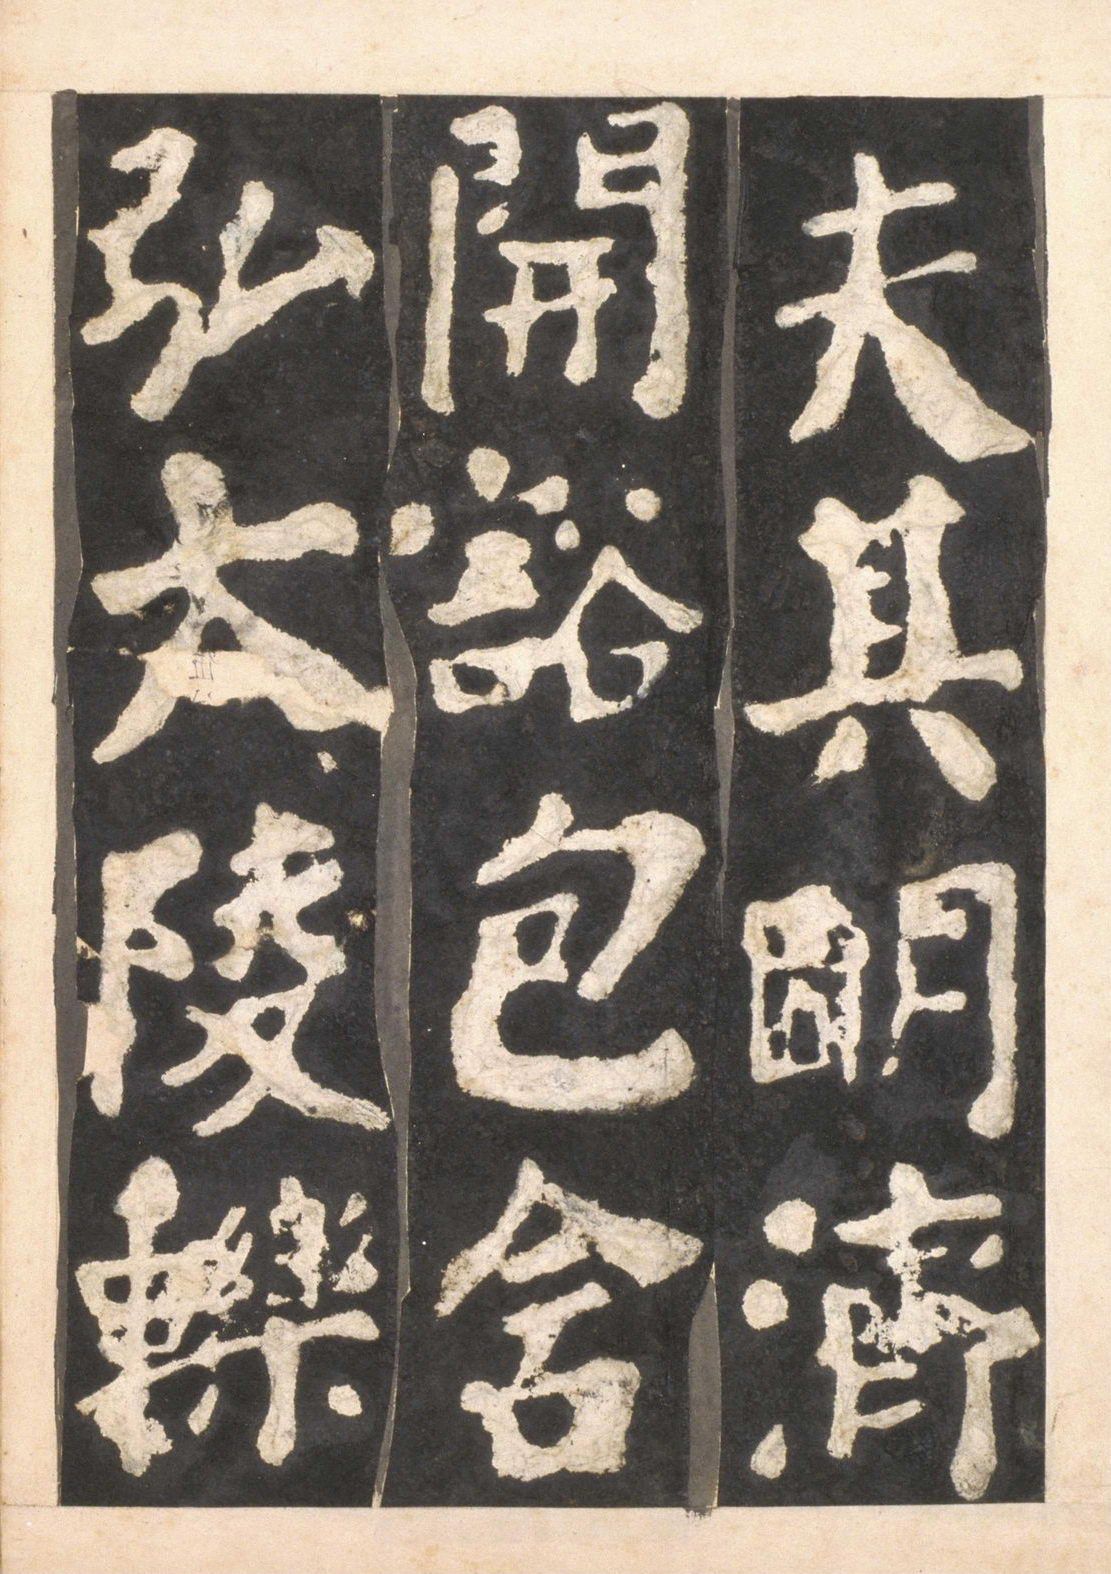 夫其明濟
開豁包含
弘大陵轢